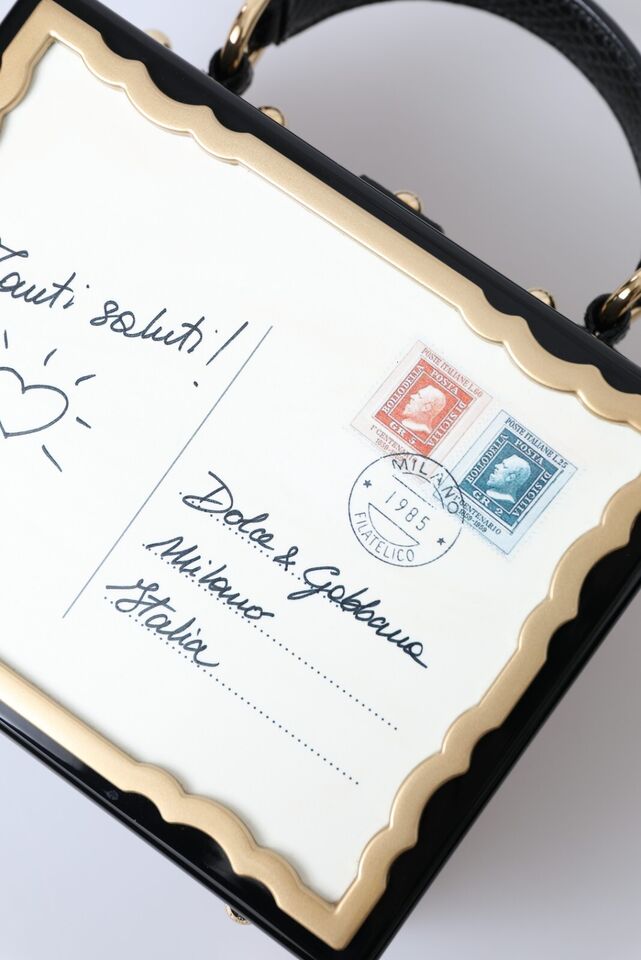 Tanti saluti!
POSTE ITALIANE L.60
BOLLO DELLA
POSTA
DI SICILIA
GR. 5
1° CENTENARIO
1859-1959
POSTE ITALIANE L.25
BOLLO DELLA
POSTA
DI SICILIA
GR 2
CENTENARIO
1859-1959
MILANO
1985
FILATELICO
Dolce & Gabbana
Milano
Italia